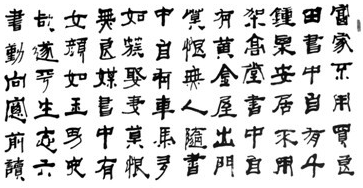 富家不用買良
田書中自有千
鍾粟安居不用
架高堂書中自
有黃金屋出門
莫恨無人隨書
中自有車馬多
如簇娶妻莫恨
無良媒書中有
女顏如玉男兒
欲遂平生志六
書勤向窗前讀